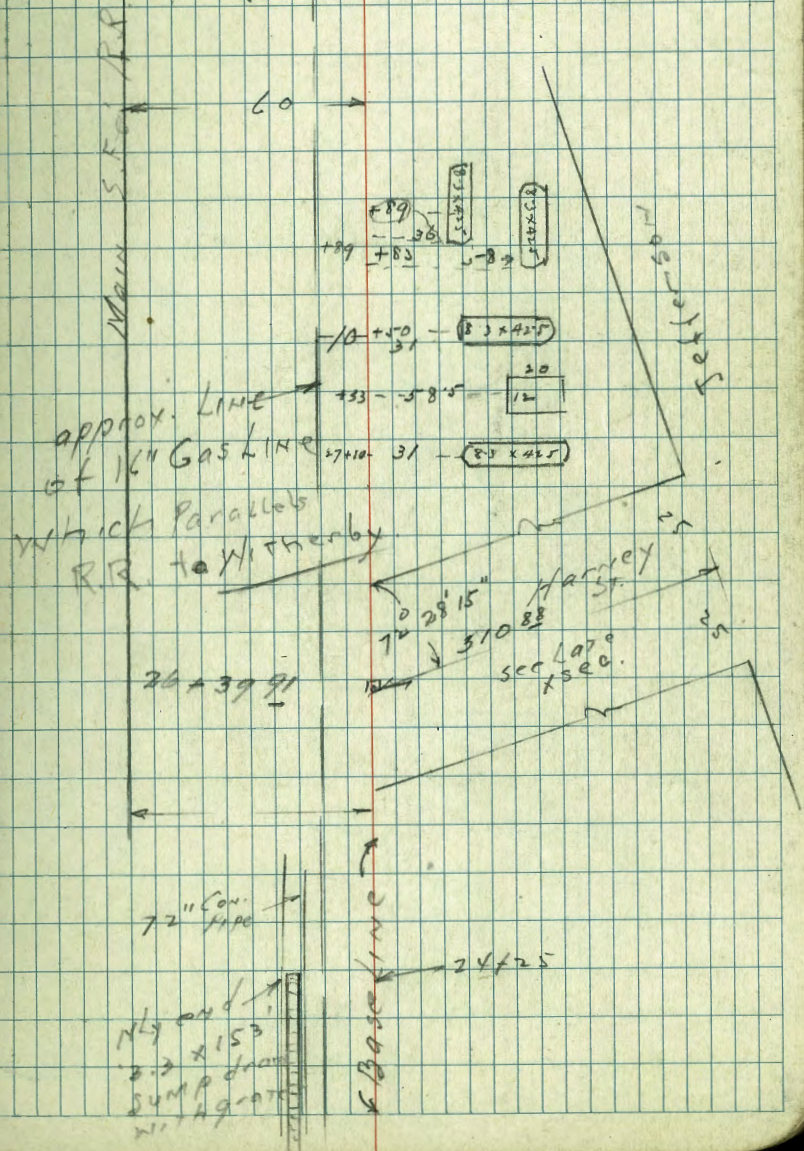 Main S.Fe. R.R.
60
+89
36
+89 +83 -8-
8.3 x 42.5
8.3 x 42.5
10 +50
31
8.3 x 42.5
+33 - -58.5 -
20
12
27+10 - 31 - 8.3 x 42.5
Jefferson
approx. LINE
of 16" Gas LINE
which Parallels
R.R. to Witherby
25
25
Harney
St.
72° 28' 15"
310 88
26 + 39 91
72" Con.
pipe
24+25
Base Line
Nly end
3.3 x 153'
sump drain
with grate